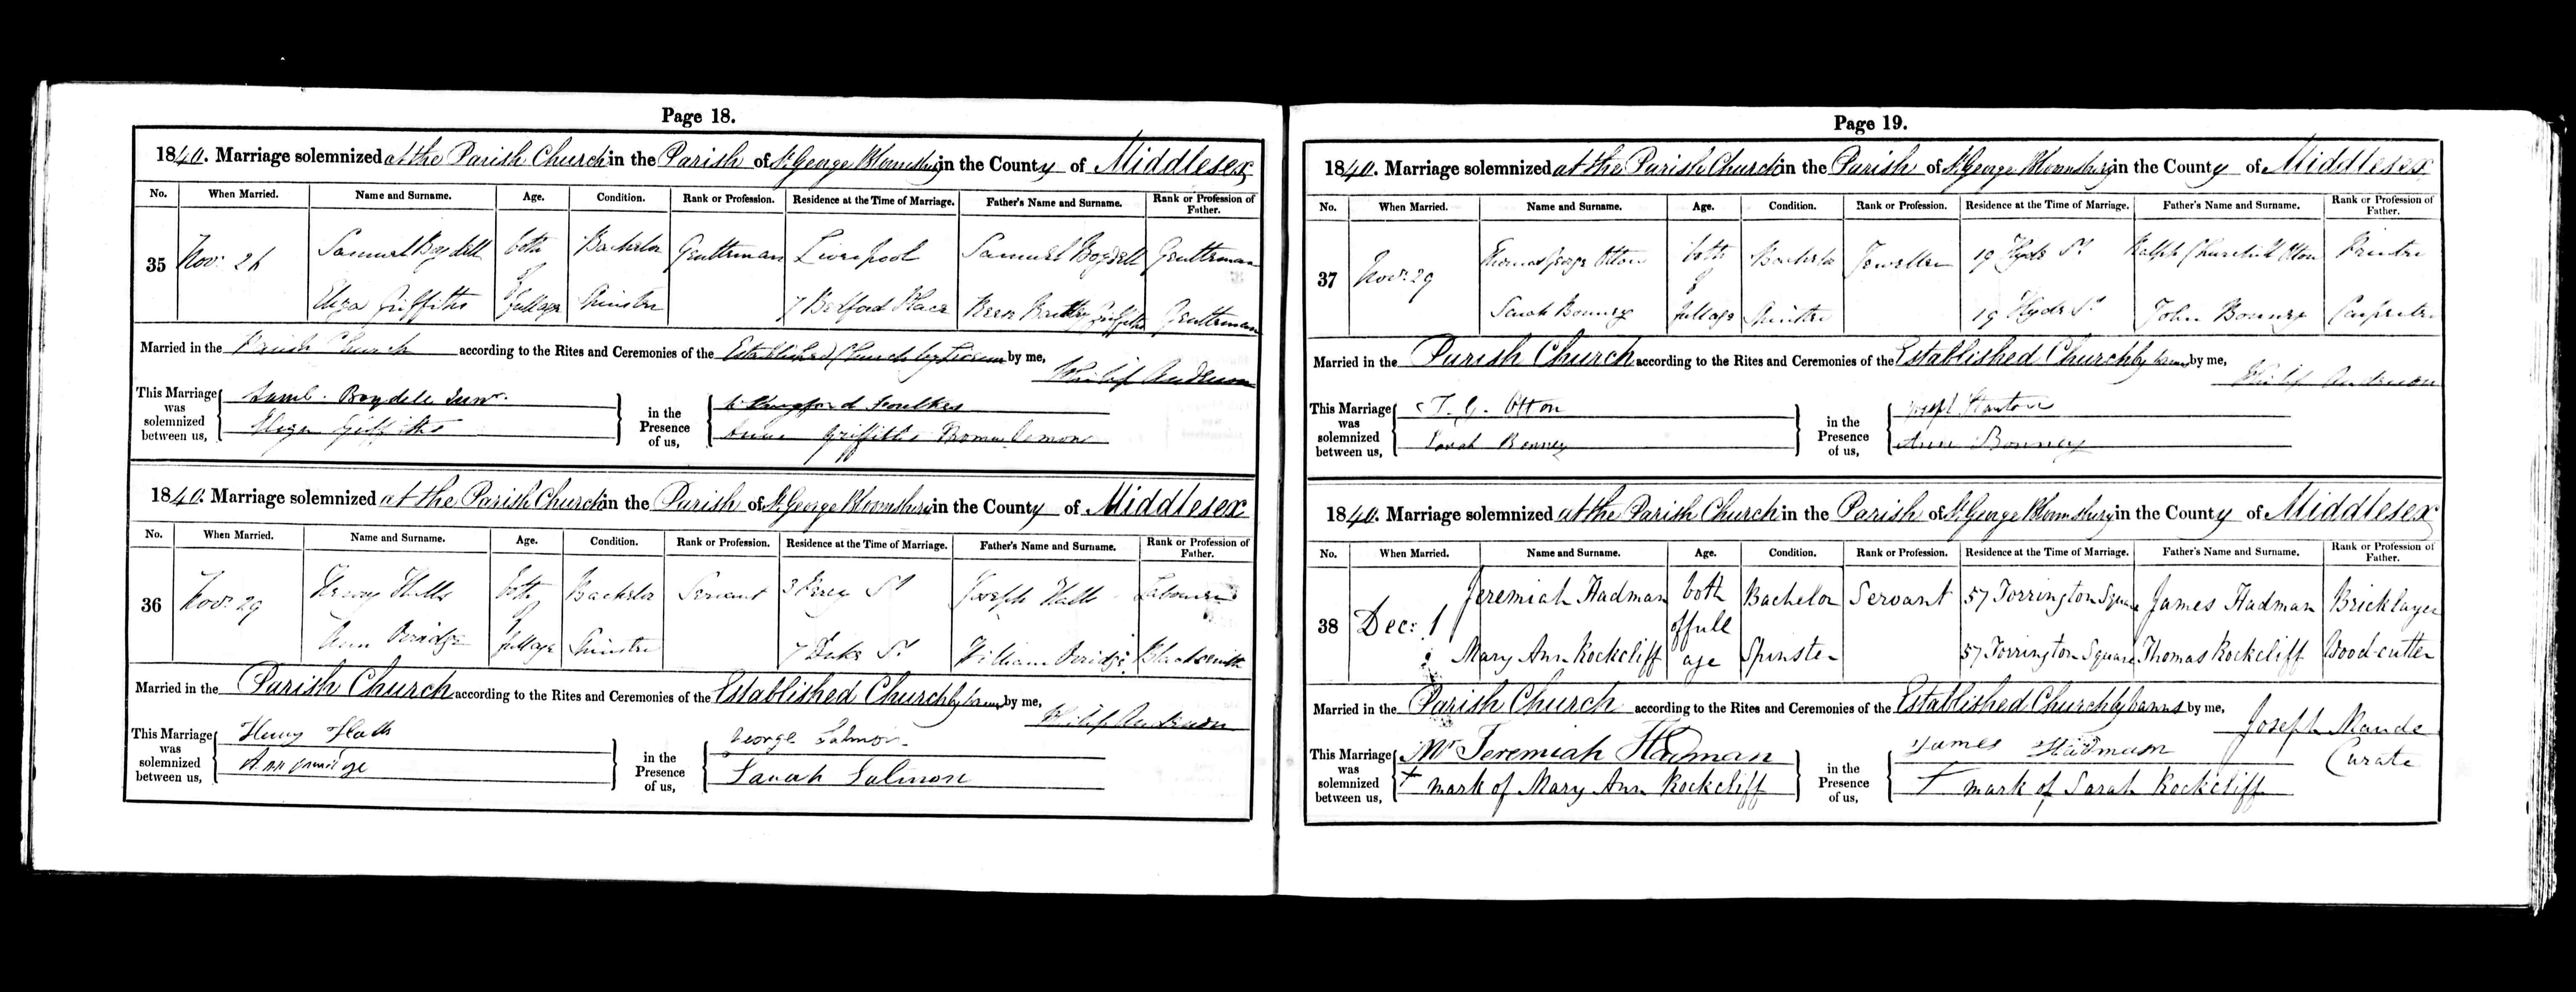 Page 18.
1840. Marriage solemnized at the Parish Church in the Parish of St. George Bloomsbury in the County of Middlesex
No. When Married. Name and Surname. Age. Condition. Rank or Profession. Residence at the Time of Marriage. Father's Name and Surname. Rank or Profession of Father.
35 Nov: 26 Samuel Boydell both Bachelor Gentleman Liverpool Samuel Boydell Gentleman
of
Eliza Griffiths full age Spinster 7 Bedford Place Griffiths Gentleman
Married in the Parish Church according to the Rites and Ceremonies of the Established Church by License by me,
Philip Anderson
This Marriage was solemnized between us,
Saml. Boydell Junr.
Eliza Griffiths
in the Presence of us,
Foulkes
Anne Griffiths
1840. Marriage solemnized at the Parish Church in the Parish of St. George Bloomsbury in the County of Middlesex
No. When Married. Name and Surname. Age. Condition. Rank or Profession. Residence at the Time of Marriage. Father's Name and Surname. Rank or Profession of Father.
36 Nov: 29 Henry Halls both Bachelor Servant 3 St Joseph Halls Labourer
of
Ann full age Spinster 7 Duke St William Blacksmith
Married in the Parish Church according to the Rites and Ceremonies of the Established Church by banns by me,
Philip Anderson
This Marriage was solemnized between us,
Henry Halls
Ann
in the Presence of us,
George Salmon
Sarah Salmon
Page 19.
1840. Marriage solemnized at the Parish Church in the Parish of St. George Bloomsbury in the County of Middlesex
No. When Married. Name and Surname. Age. Condition. Rank or Profession. Residence at the Time of Marriage. Father's Name and Surname. Rank or Profession of Father.
37 Nov: 29 Thomas George Otton both Bachelor Jeweller 19 Hyde St Ralph Churchill Otton
of
Sarah Bonney full age Spinster 19 Hyde St John Bonney Carpenter
Married in the Parish Church according to the Rites and Ceremonies of the Established Church by banns by me,
Philip Anderson
This Marriage was solemnized between us,
T. G. Otton
Sarah Bonney
in the Presence of us,
Joseph Stanton
Ann Bonney
1840. Marriage solemnized at the Parish Church in the Parish of St. George Bloomsbury in the County of Middlesex
No. When Married. Name and Surname. Age. Condition. Rank or Profession. Residence at the Time of Marriage. Father's Name and Surname. Rank or Profession of Father.
38 Dec: 1 Jeremiah Hadman both Bachelor Servant 57 Torrington Square James Hadman Bricklayer
of full
Mary Ann Rockcliff age Spinster 57 Torrington Square Thomas Rockcliff Wood-cutter
Married in the Parish Church according to the Rites and Ceremonies of the Established Church by banns by me,
Joseph Maude
Curate
This Marriage was solemnized between us,
Mr Jeremiah Hadman
+ mark of Mary Ann Rockcliff
in the Presence of us,
James Hadman
+ mark of Sarah Rockcliff